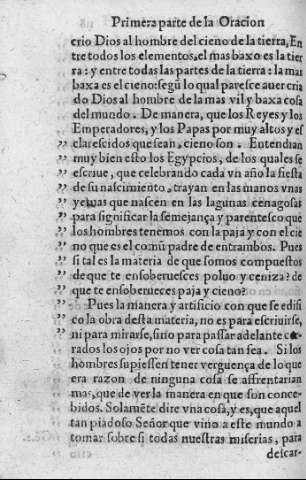 Primera parte de la Oracion
crio Dios al hombre del cieno de la tierra, En
tre todos los elementos, el mas baxo es la tier
ra: y entre todas las partes de la tierra: la mas
baxa es el cieno: segũ lo qual paresce auer cria
do Dios al hombre de la mas vil y baxa cosa
del mundo. De manera, que los Reyes y los
Emperadores, y los Papas por muy altos y es
clarescidos que sean, cieno son. Entendian
muy bien esto los Egypcios, de los quales se
„ escriue, que celebrando cada vn año la fiesta
„ de su nascimiento, trayan en las manos vnas
„ yeruas que nascen en las lagunas cenagosas
„ para significar la semejança y parentesco que
„ los hombres tenemos con la paja y con el cie
„ no que es el comũ padre de entrambos. Pues
„ si tal es la materia de que somos compuestos
„ de que te ensoberuesces poluo y ceniza? de
„ que te ensoberueces paja y cieno?
„ Pues la manera y artificio con que se edifi
„ co la obra desta materia, no es para escriuirse,
„ ni para mirarse, sino para passar adelante cer
rados los ojos por no ver cosa tan fea. Si los
hombres supiessen tener verguença de lo que
era razon de ninguna cosa se affrentarian
mas, que de ver la manera en que son conce-
bidos. Solamẽte dire vna cosa, y es, que aquel
tan piadoso Señor que vino a este mundo a
tomar sobre si todas nuestras miserias, para
descar-